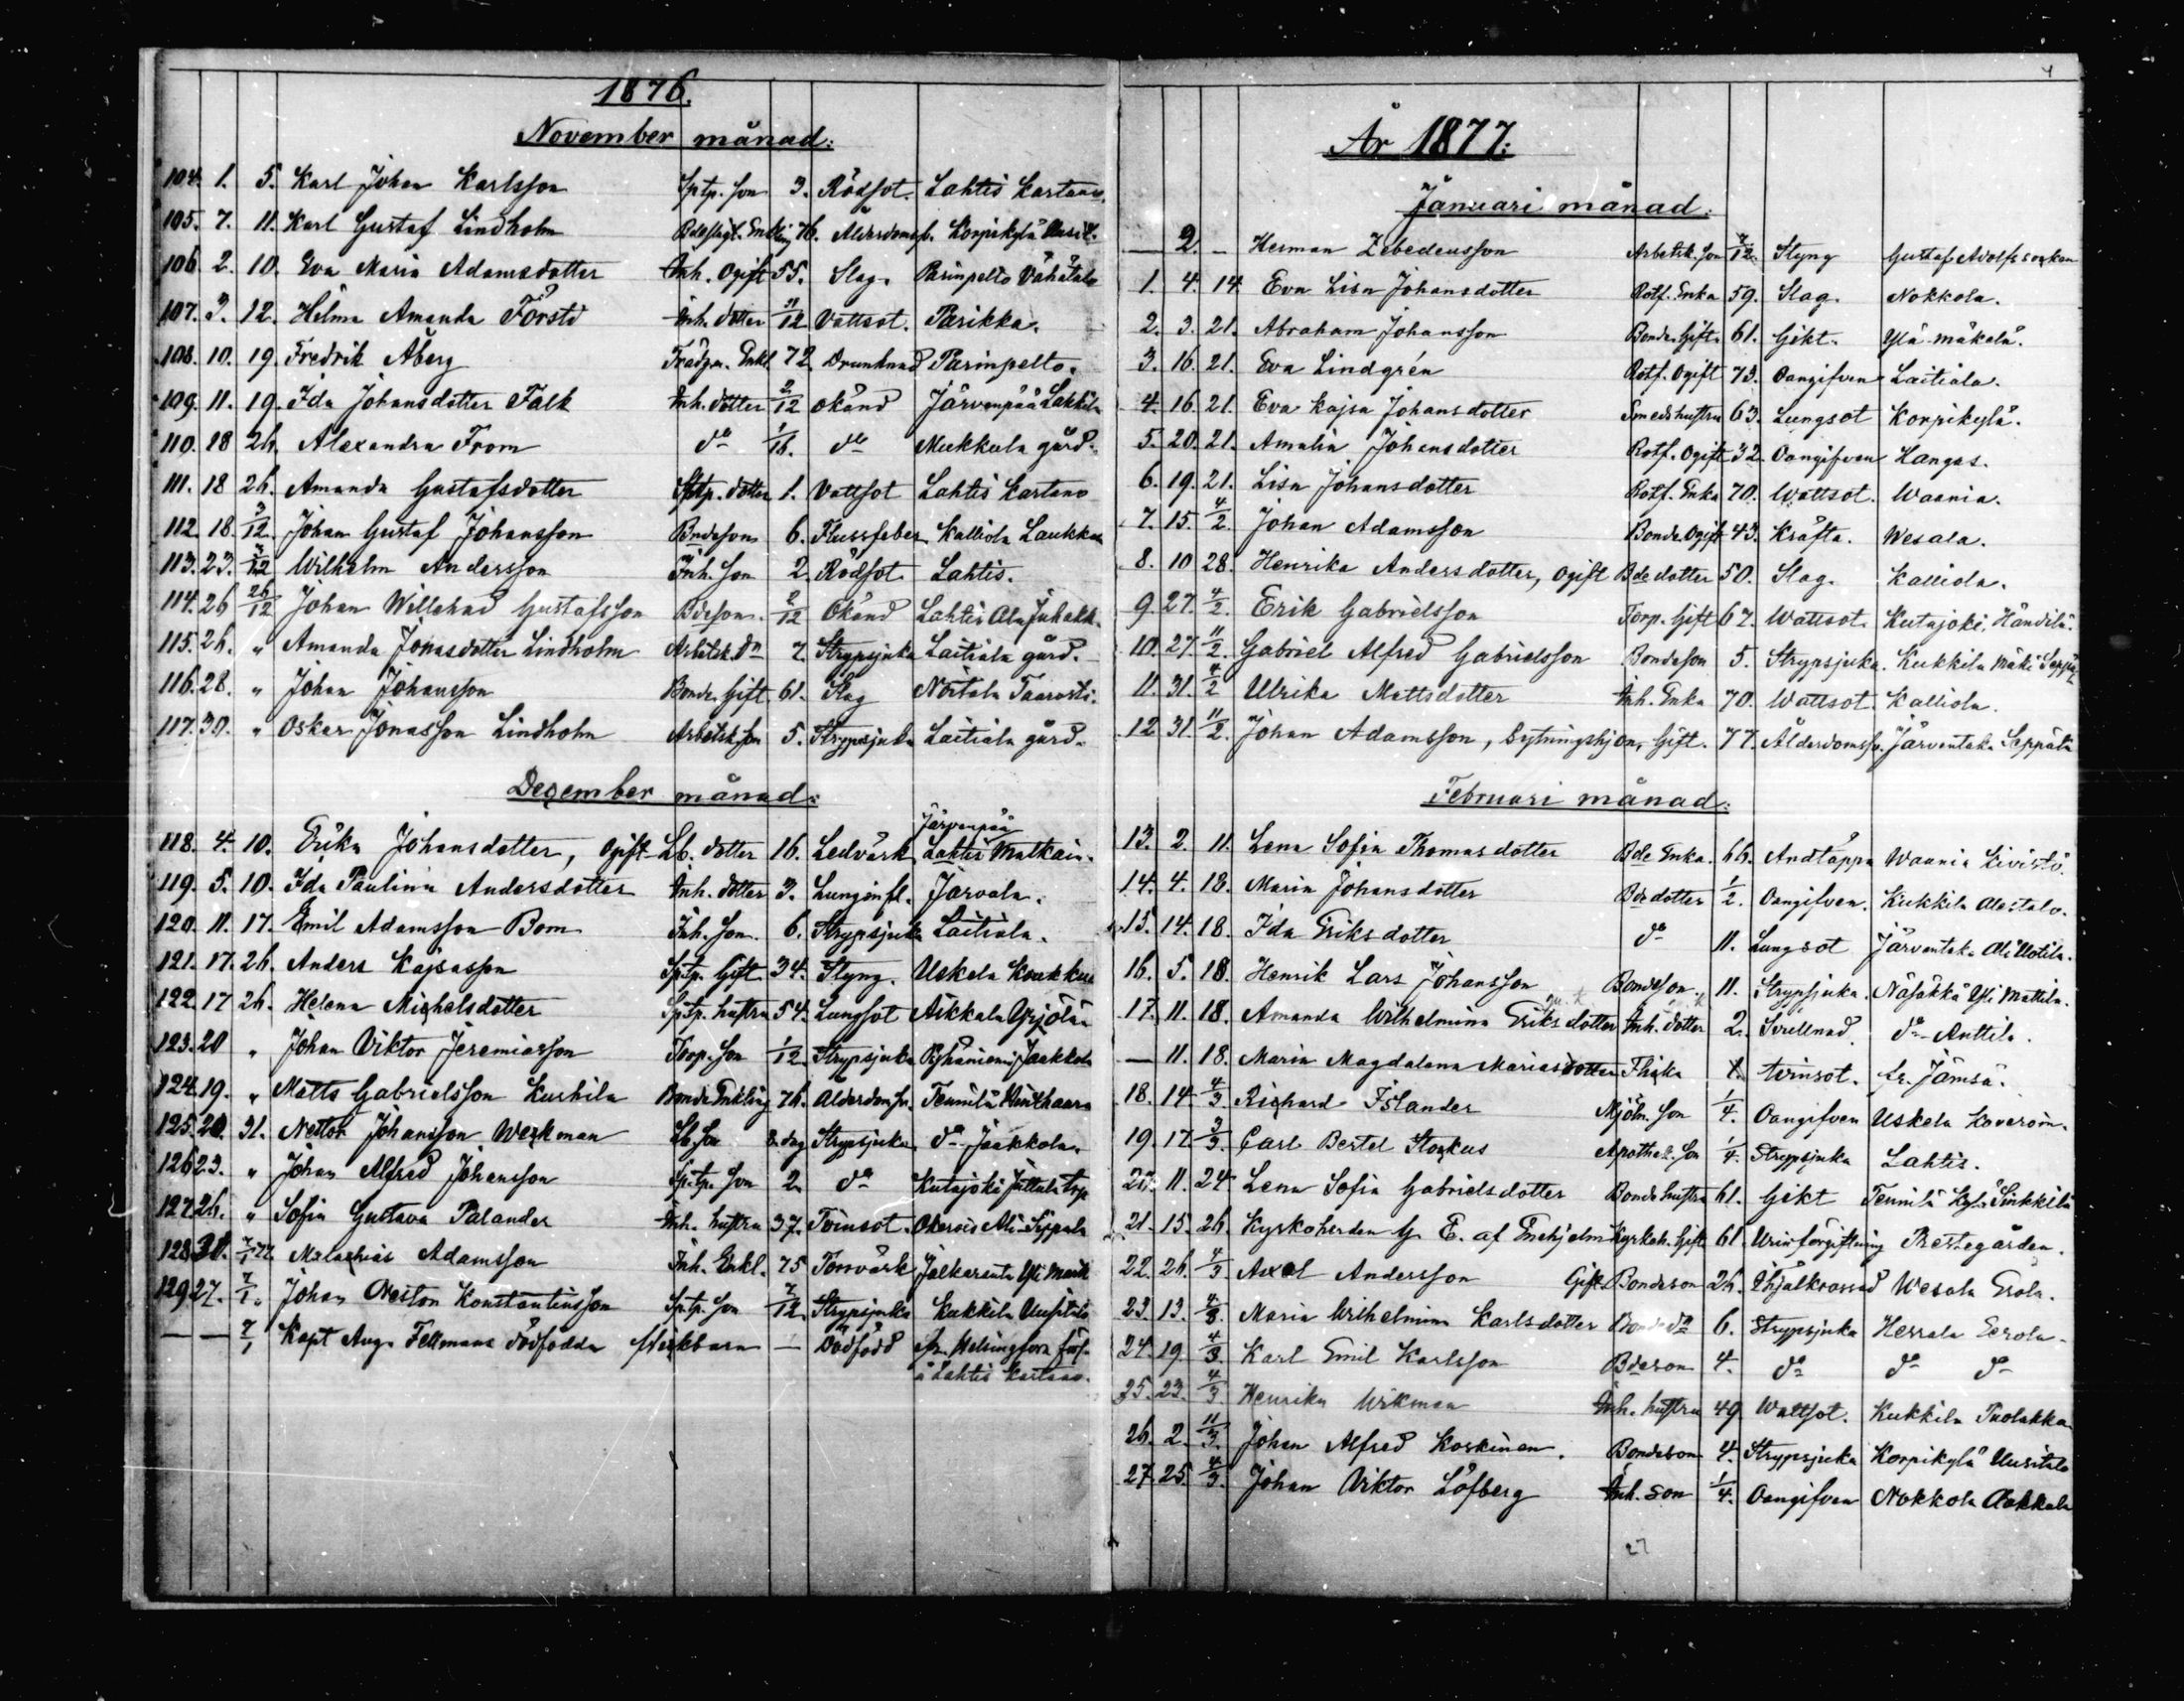 1876.
November månad:
104. 1. 5. Karl Johan Karlsson Sptp. Son 3. Rödsot. Lahtis Kartano.
105. 7. 11. Karl Gustaf Lindholm 76. Ålderdomsf. Korpikylä
106. 2. 10. Eva Maria Adamsdotter Inh. Ogift 55. Slag. Parinpelto Vähätalo
107. 3. 12. Hilma Amanda Förstö Inh. dotter 11/12 Vattsot. Parikka.
108. 10. 19. Fredrik Åberg Enkl. 72. Drunknad Parinpelto.
109. 11. 19. Ida Johansdotter Falk Inh. dotter 2/12 okänd Järvenpää Lakkila
110. 18 26. Alexandra From do do Mukkula gård.
111. 18 26. Amanda Gustafsdotter Sptp. dotter 1. Vattsot Lahtis Kartano
112. 18. 3/12. Johan Gustaf Johansson Bndeson 6. Flussfeber Kalliola Laukkas
113. 23. 3/12 Wilhelm Andersson Inh. Son 2. Rödsot Lahtis.
114. 26 26/12 Johan Willehad Gustafsson Bdeson. 2/12 Okänd Lahtis Ala Juhakk.
115. 26. " Amanda Jonasdotter Lindholm Arbetsk. dr 7. Strypsjuka Laitiala gård.
116. 28. " Johan Johansson Bonde. Gift 61. Slag Nostola Taarasti.
117. 30. " Oskar Jonasson Lindholm Arbetsk. son 5. Strypsjuka Laitiala gård.
Dezember månad:
Järvenpää
118. 4. 10. Erika Johansdotter, Ogift Lb. dotter 16. Ledvärk Lahtis Matkain.
119. 5. 10. Ida Paulina Andersdotter Inh. dotter 3. Lunginfl. Järvala.
120. 11. 17. Emil Adamsson Bom Inh. Son. 6. Strypsjuka Laitiala.
121. 17. 26. Anders Kajsasson Sptp. Gift 34. Styng. Uskela Koukku
122. 17 26. Helena Michelsdotter Sptp. hustru 54. Lungsot Äikkälä Yrjölä
123. 20 " Johan Viktor Jeremiasson Torp. Son 1/12 Strypsjuka Pyhäniemi Jaakkola
124. 19. " Matts Gabrielsson Kurhila Bonde Enkling 76. Ålderdomsv. Tennilä Vinthaara
125. 20. 31. Nestor Johansson Werkman Lb. Son 8. dag Strypsjuka do Jaakkola.
126 23. " Johan Alfred Johansson Sptp. Son 2. do Kutajoki Juttula trp
127. 26. " Sofia Gustava Palander Inh. hustru 37. Tvinsot. Okerois Ali Seppälä
128. 30. Malachias Adamsson Inh. Enkl. 75 Torrvärk Jalkaranta Yli Marti
129 27. 7/1. Johan Neston Konstantinsson Sptp. Son 7/12. Strypsjuka Kukkila Uusitalo
— — 7/1 Kapt. Aug. Fellmans dödfödda flickbarn — Dödfödd fr. Helsingfors förs.
å Lahtis Kartano.
År 1877.
Januari månad.
— 2. — Herman Zebedeusson Arbetsk. son 7/12. Styng Gustaf Adolfs socken
1. 4. 14 Eva Lisa Johansdotter Rotf. Enka 59. Slag. Nokkola.
2. 3. 21. Abraham Johansson Bonde. Gift. 61. Gikt. Ylä-mäkelä.
3. 16. 21. Eva Lindgrén Rotf. Ogift 73. Oangifven Laitiala.
4. 16. 21. Eva Kajsa Johansdotter Smedshustru 63. Lungsot Korpikylä.
5. 20. 21. Amalia Johansdotter Rotf. Ogift 32. Oangifven Kangas.
6. 19. 21. Lisa Johansdotter Rotf. Enka 70. Wattsot. Waania.
7. 15. 4/2. Johan Adamsson Bonde Ogift 43. Kräfta. Wesala.
8. 10 28. Henrika Andersdotter, Ogift Bde dotter 50. Slag. Kalliola.
9. 27. 4/2. Erik Gabrielsson Torp. Gift 67. Wattsot. Kutajoki. Händilä.
10. 27. 11/2. Gabriel Alfred Gabrielsson Bondeson 5. Strypsjuka. Kukkila Mäki Seppä
11. 31. 4/2 Ulrika Mattsdotter Inh. Enka 70. Wattsot. Kalliola.
12 31. 11/2. Johan Adamsson, Sytningshjon, Gift. 77. Ålderdomsv. Järventaka Seppälä
Februari månad:
13. 2. 11. Lena Sofia Thomasdotter Bde Enka. 66. Andtäppa Waania Livistö.
14. 4. 18. Maria Johansdotter Bde dotter 1/2. Oangifven. Kukkila Alastalo.
15. 14. 18. Ida Eriksdotter do 11. Lungsot Järventaka Ali Uotila.
16. 5. 18. Henrik Lars Johansson Bondeson. 11. Strypsjuka. Näsäkkä Yli Mattila.
17. 11. 18. Amanda Wilhelmina Eriksdotter Inh. dotter 2. Svullnad. do Anttila.
— 11. 18. Maria Magdalena Mariasdotter Flicka 1. tvinsot. fr. Jämsä.
18. 14. 4/3. Richard Islander Mjöln. son 1/4. Oangifven Uskela Koveroin.
19. 17. 3/3. Carl Bertel Storkus Apothek. Son 1/4. Strypsjuka Lahtis.
20. 11. 24. Lena Sofia Gabrielsdotter Bonde hustru 61. Gikt Tennilä Kylä Sinkkilä
21. 15. 26. Kyrkoherden G. E. af Enehjelm Kyrkoh. Gift 61. Urinförgiftning Prestegården.
22. 26. 4/3 Axel Andersson Gift Bondeson 26. Ihjälkrossad Wesala Erola.
23. 13. 4/3. Maria Wilhelmina Karlsdotter Bonde dr 6. Strypsjuka Herrala Eerola.
24. 19. 4/3. Karl Emil Karlsson Bdeson 4. do do do
25. 23. 4/3. Henrika Wikman Inh. hustru 49. Wattsot. Kukkila Puolakka
26. 2. 11/3. Johan Alfred Koskinen. Bondeson 4. Strypsjuka Korpikylä Uusitalo
27. 25. 4/3. Johan Viktor Löfberg Inh. son 1/4. Oangifven Nokkola Aakkala
27